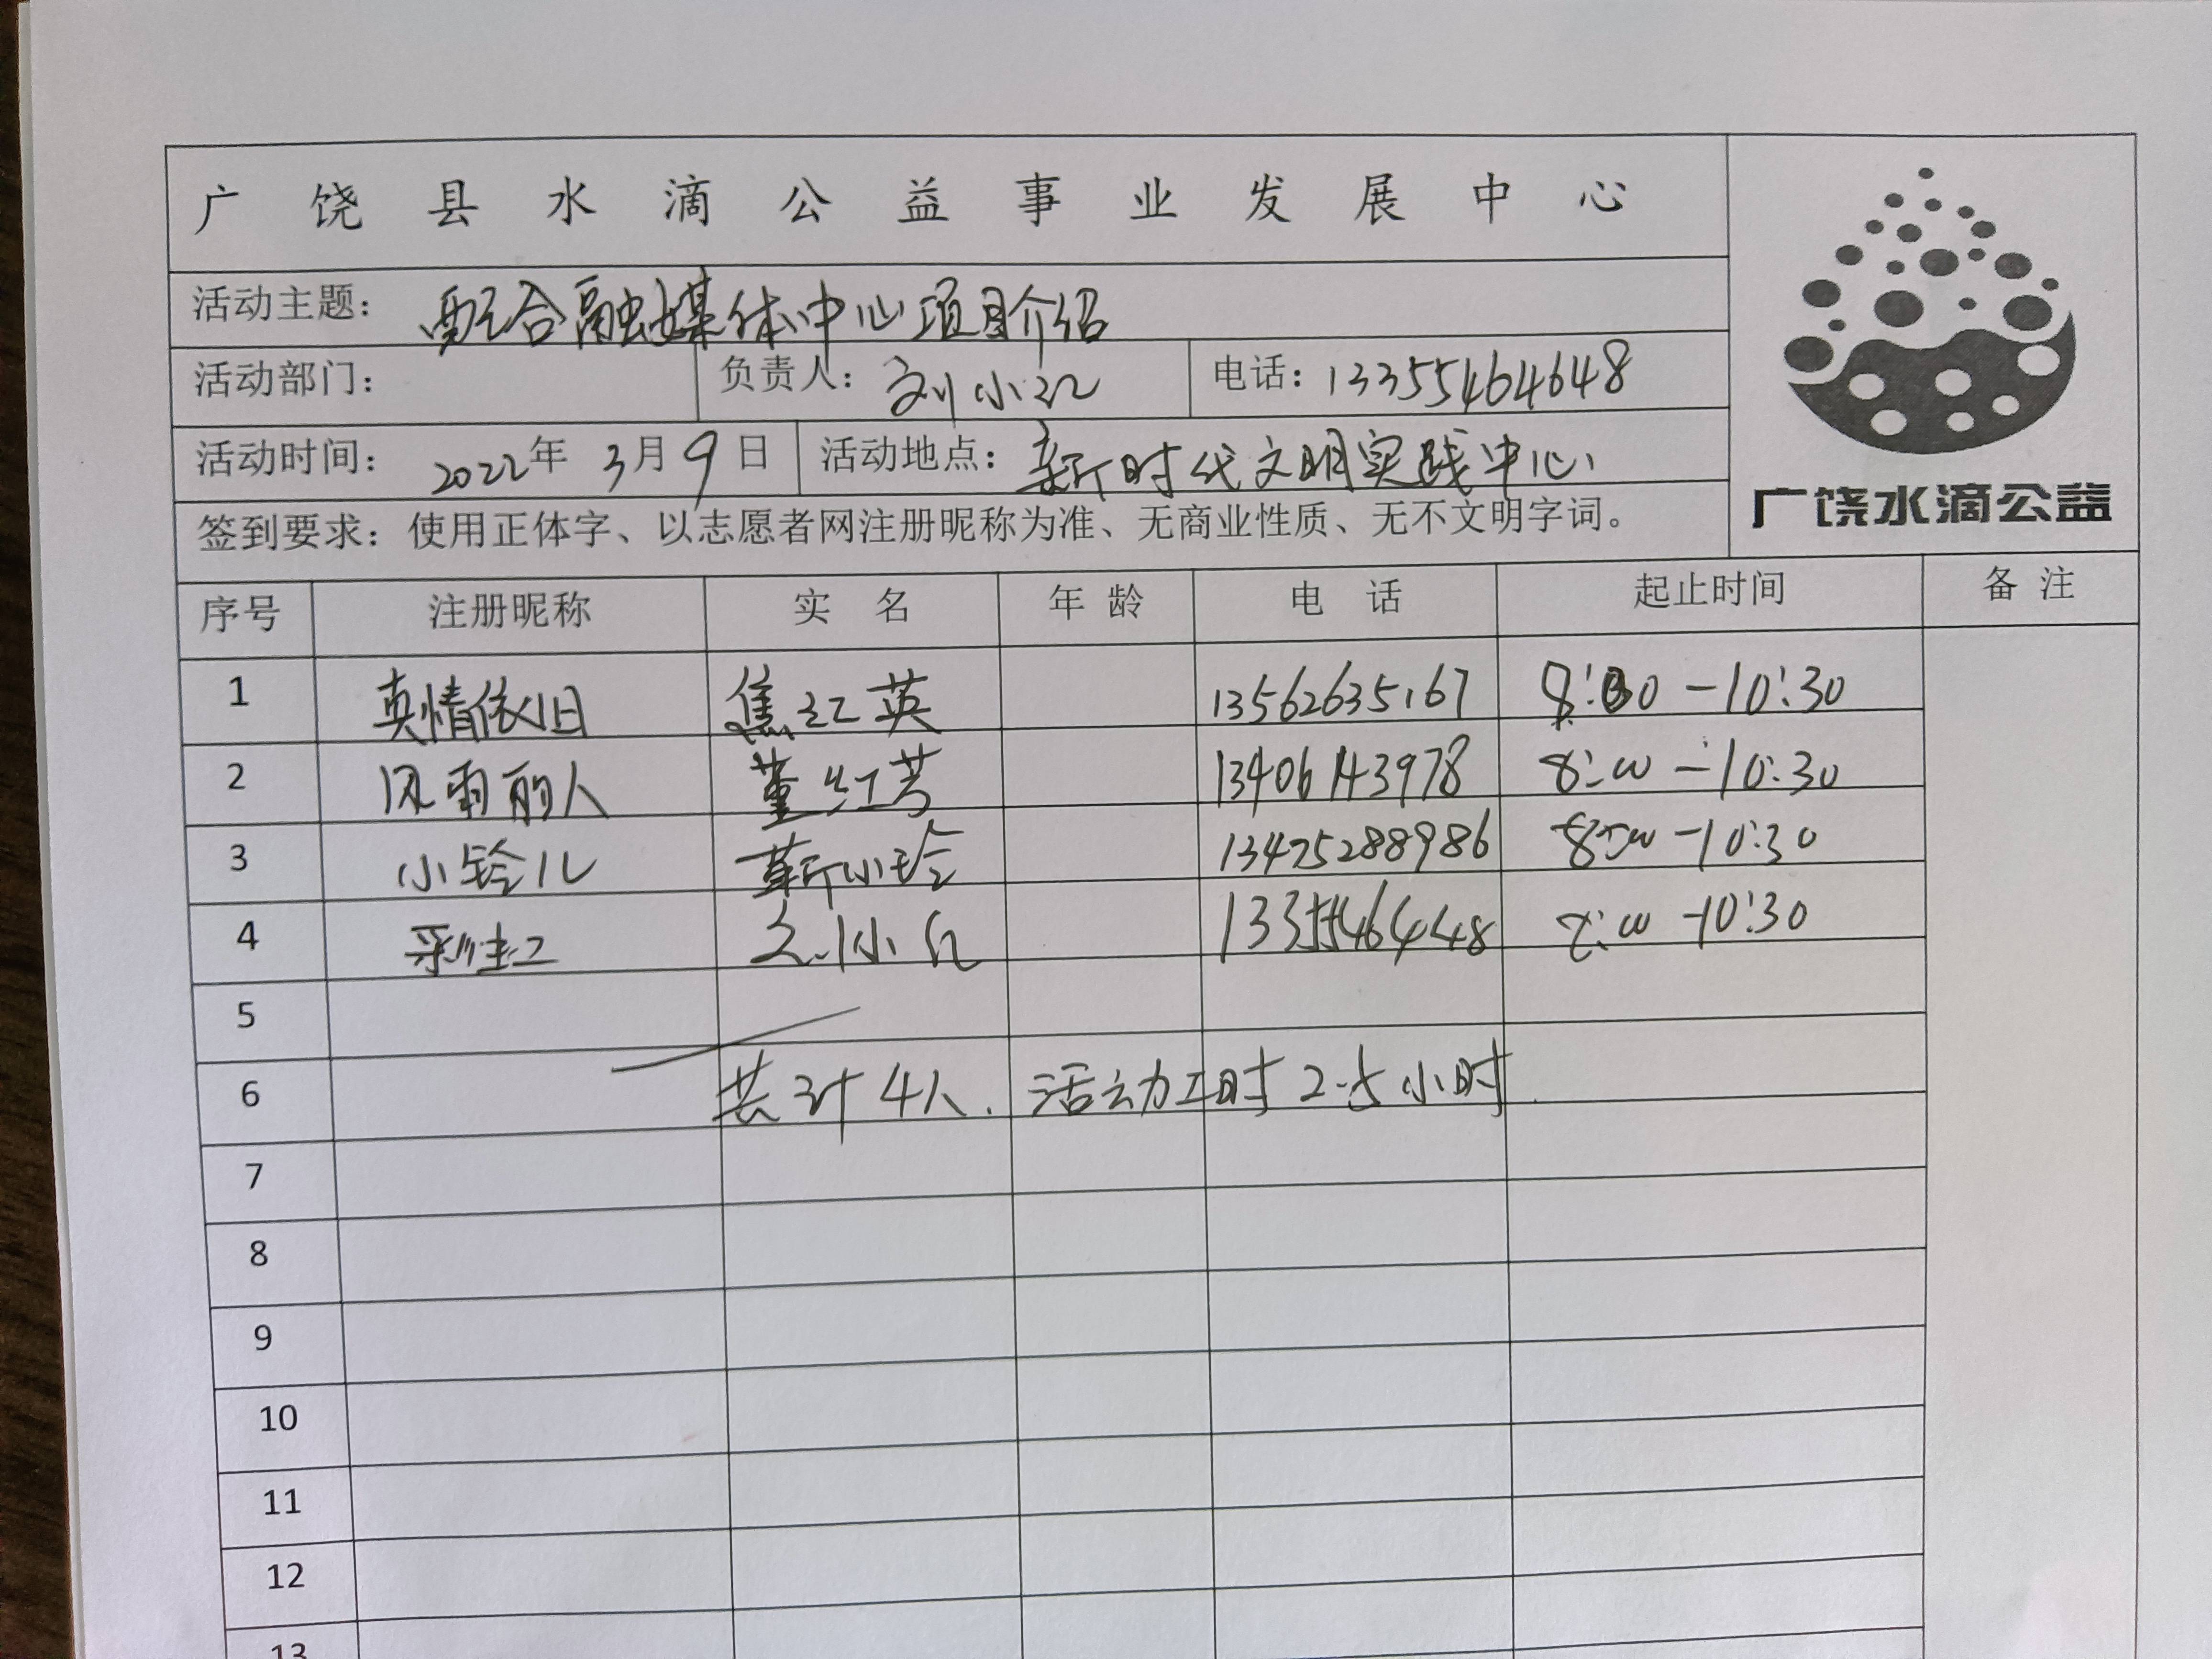 广饶县水滴公益事业发展中心
活动主题：配合融媒体中心项目介绍
活动部门： 负责人：刘小红 电话：13355464648
活动时间：2022年3月9日 活动地点：新时代文明实践中心
广饶水滴公益
签到要求：使用正体字、以志愿者网注册昵称为准、无商业性质、无不文明字词。
序号 注册昵称 实名 年龄 电话 起止时间 备注
1 真情依旧 焦红英 13562635167 8:00-10:30
2 风雨丽人 董红芳 13406143978 8:00-10:30
3 小铃儿 靳小玲 13475288986 8:00-10:30
4 刘小红 8:00-10:30
5
6 共计4人. 活动工时2.5小时.
7
8
9
10
11
12
13